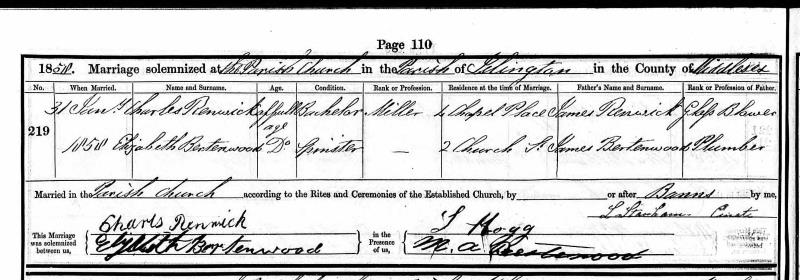 Page 110
1858. Marriage solemnized at the Parish Church in the Parish of Islington in the County of Middlesex
No. When Married. Name and Surname. Age. Condition. Rank or Profession. Residence at the time of Marriage. Father's Name and Surname. Rank or Profession of Father.
219
31 Jany Charles Renwick of full age Bachelor Miller 4 Chapel Place James Renwick Glass Blower
1858 Elizabeth Bertenwood Do Spinster — 2 Church St James Bertenwood Plumber
Married in the Parish Church according to the Rites and Ceremonies of the Established Church, by or after Banns by me,
Curate
This Marriage was solemnized between us,
Charls Renwick
Bertenwood
in the Presence of us,
Hogg
M. A.